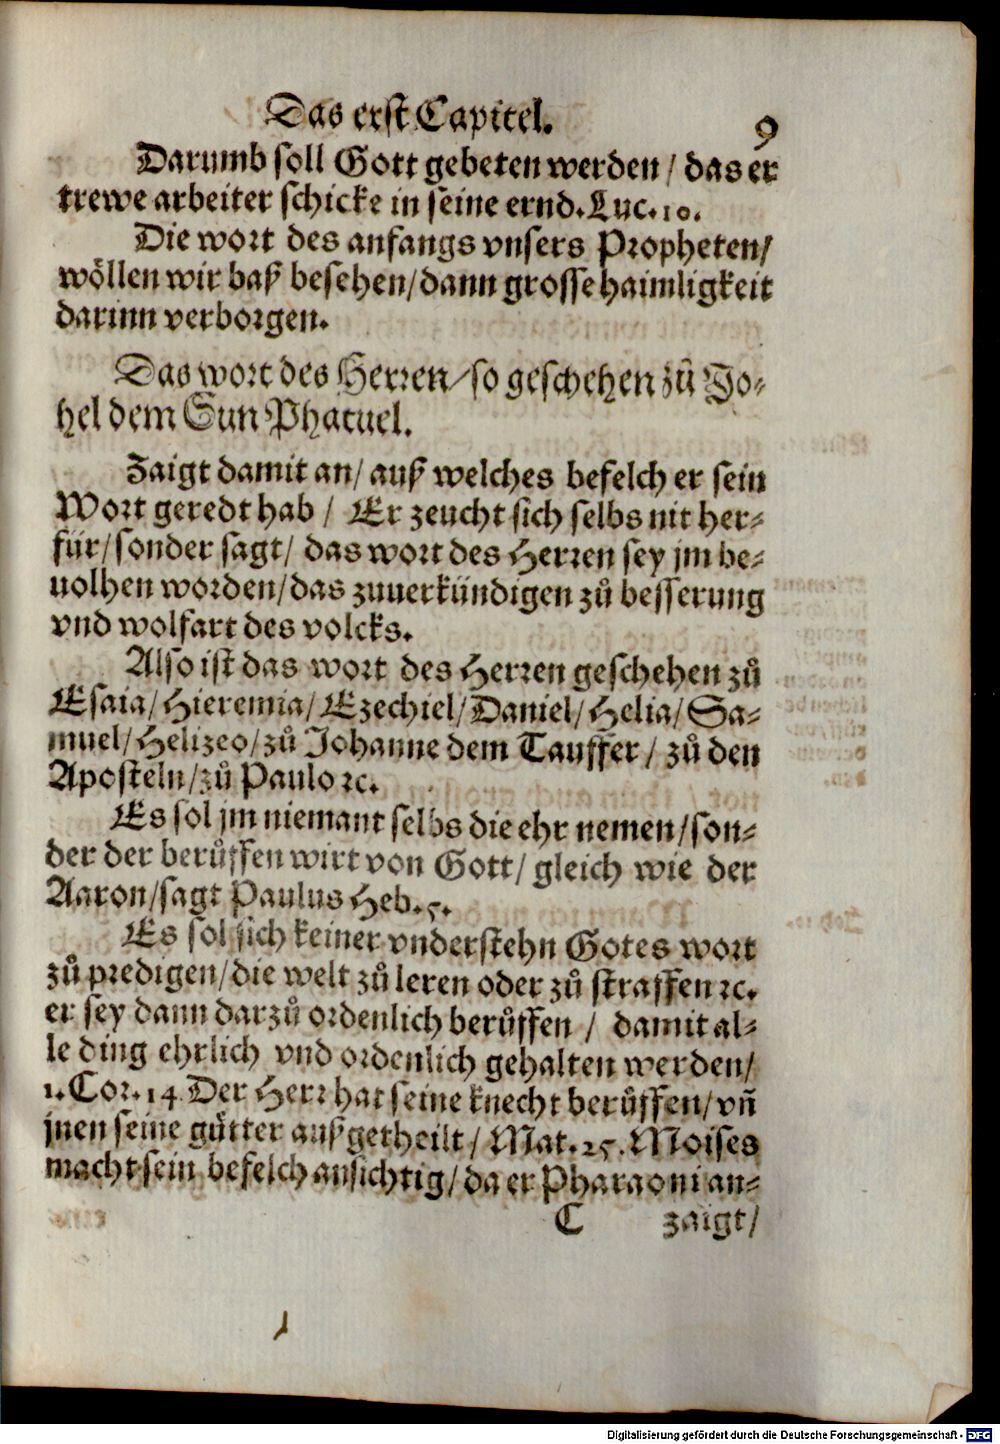 Das erst Capitel. 9
Darumb soll Gott gebeten werden / das er
trewe arbeiter schicke in seine ernd. Luc. 10.
Die wort des anfangs vnsers Propheten/
wöllen wir baß besehen/dann grosse haimligkeit
darinn verborgen.
Das wort des Herren/so geschehen zů Jo-
hel dem Sun Phatuel.
Zaigt damit an/ auß welches befelch er sein
Wort geredt hab / Er zeucht sich selbs nit her-
für/sonder sagt/ das wort des Herren sey jm be-
uolhen worden/das zuuerkündigen zů besserung
vnd wolfart des volcks.
Also ist das wort des Herren geschehen zů
Esaia/Hieremia/Ezechiel/Daniel/Helia/Sa-
muel/Helizeo/zů Johanne dem Tauffer / zů den
Aposteln/zů Paulo ꝛc.
Es sol jm niemant selbs die ehr nemen/son-
der der berůffen wirt von Gott/ gleich wie der
Aaron/sagt Paulus Heb. 5.
Es sol sich keiner vnderstehn Gotes wort
zů predigen/die welt zů leren oder zů straffen ꝛc.
er sey dann darzů ordenlich berůffen / damit al-
le ding ehrlich vnd ordenlich gehalten werden/
1. Cor. 14 Der Herr hat seine knecht berůffen/vñ
jnen seine gůtter außgetheilt/ Mat. 25. Moises
macht sein befelch ansichtig/da er Pharaoni an-
C zaigt/
Digitalisierung gefördert durch die Deutsche Forschungsgemeinschaft - DFG